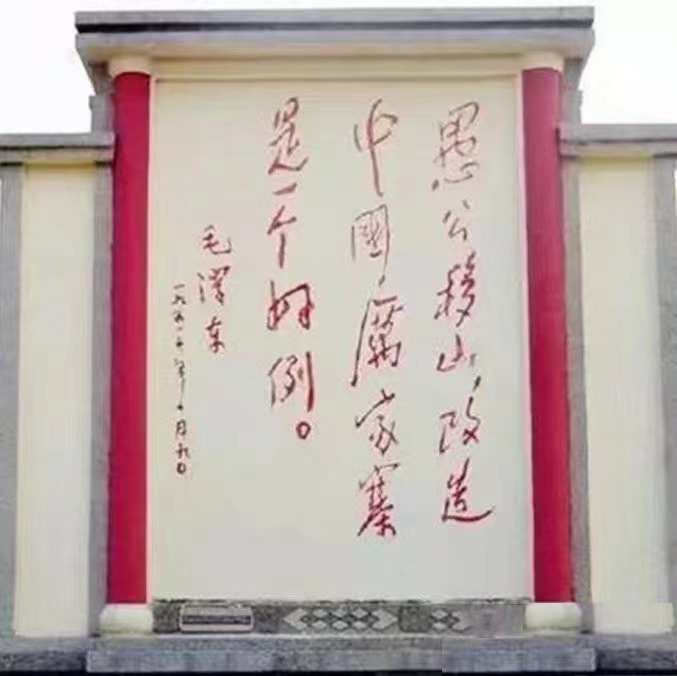 愚公移山，改造
中國，厲家寨
是一个好例。
毛澤东
一九五七年十月九日